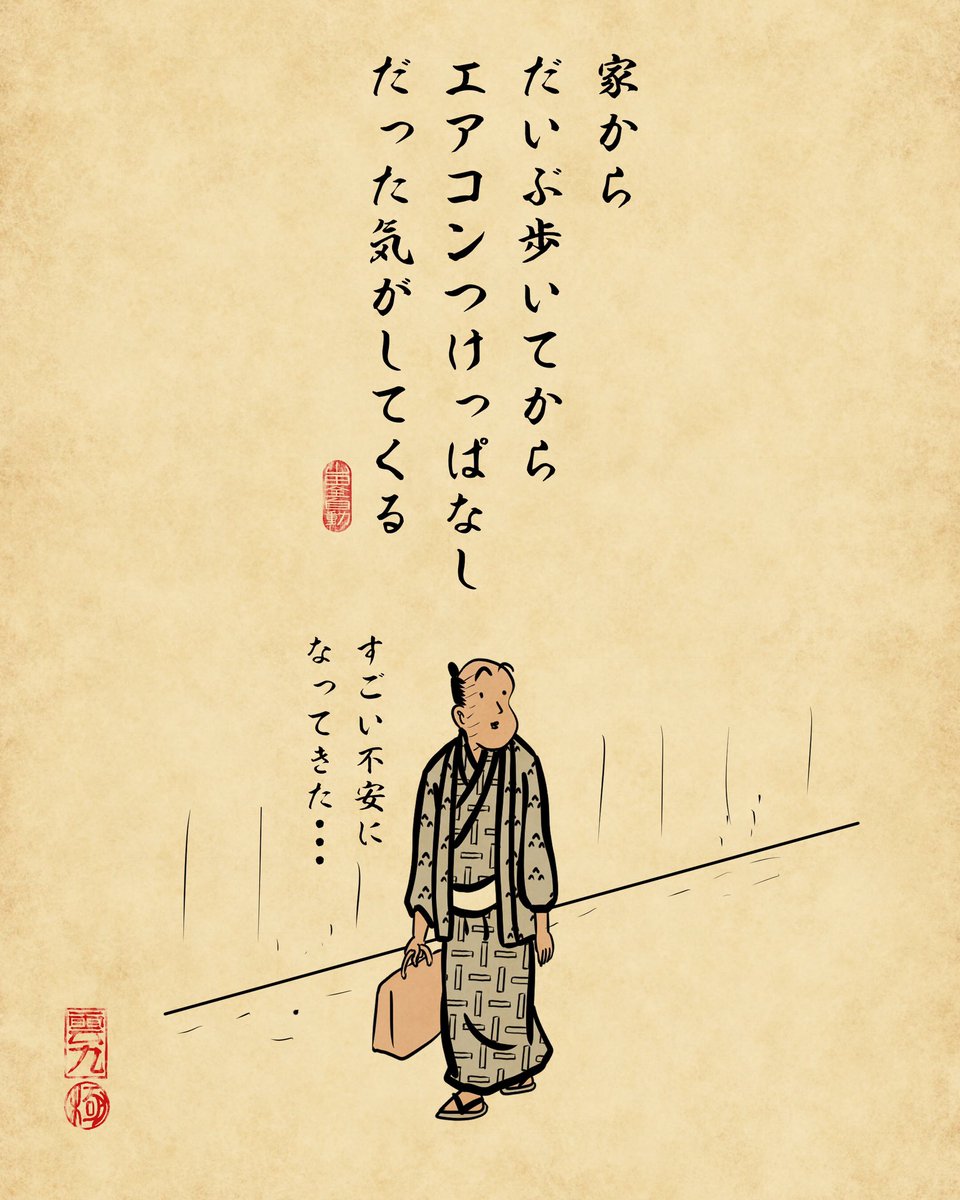 家から
だいぶ歩いてから
エアコンつけっぱなし
だった気がしてくる
すごい不安に
なってきた・・・